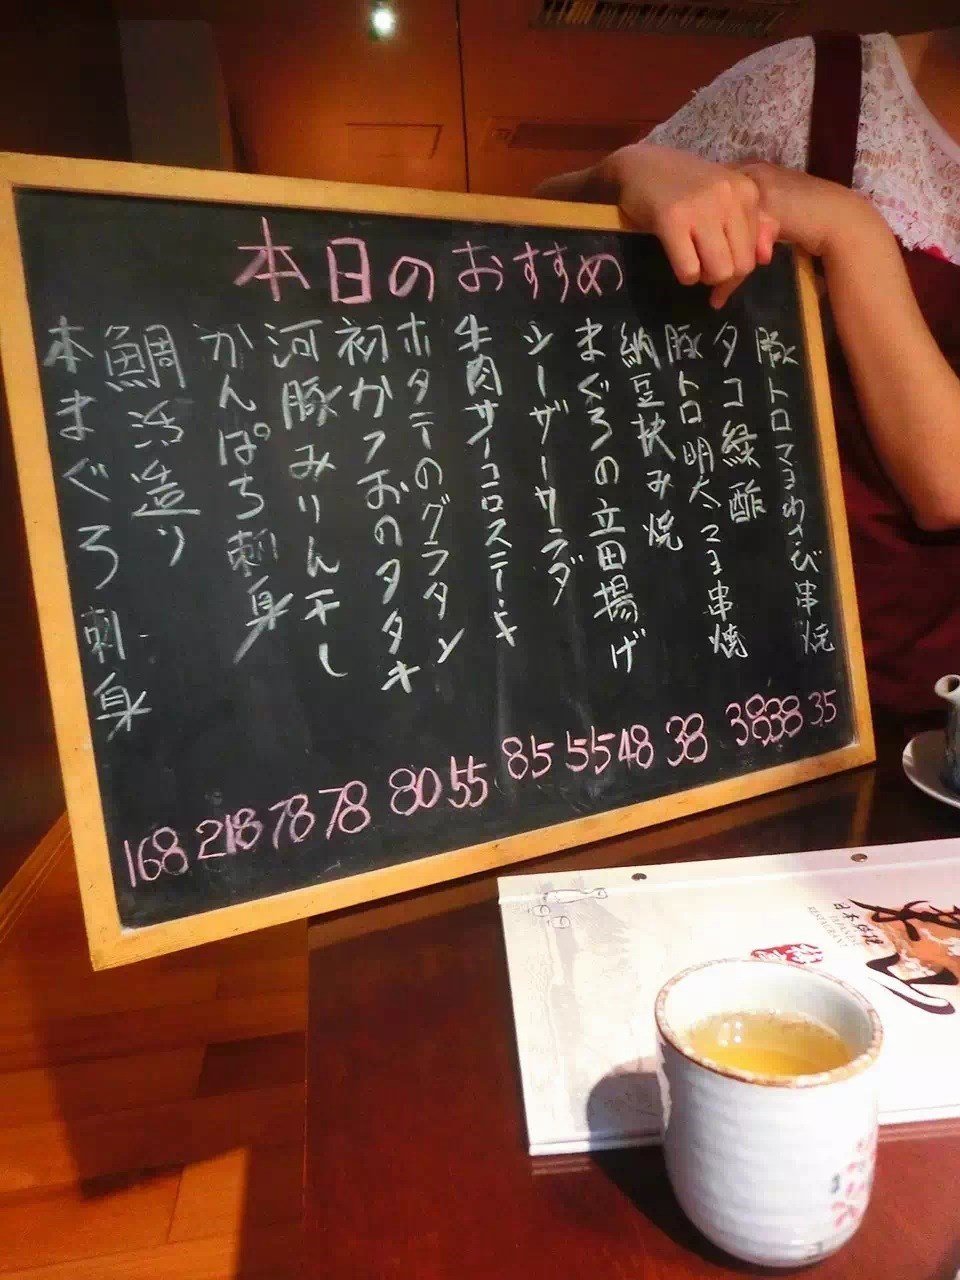 本日のおすすめ
豚トロマヨわさび串焼
タコ緑酢
豚トロ明太マヨ串焼
納豆挟み焼
まぐろの立田揚げ
シーザーサラダ
牛肉サイコロステーキ
ホタテのグラタン
初カツおのタタキ
河豚みりん干し
かんぱち刺身
鯛活造り
本まぐろ刺身
168 218 78 78 80 55 85 55 48 38 38 38 35
日本料理
JAPANESE
RESTAURANT